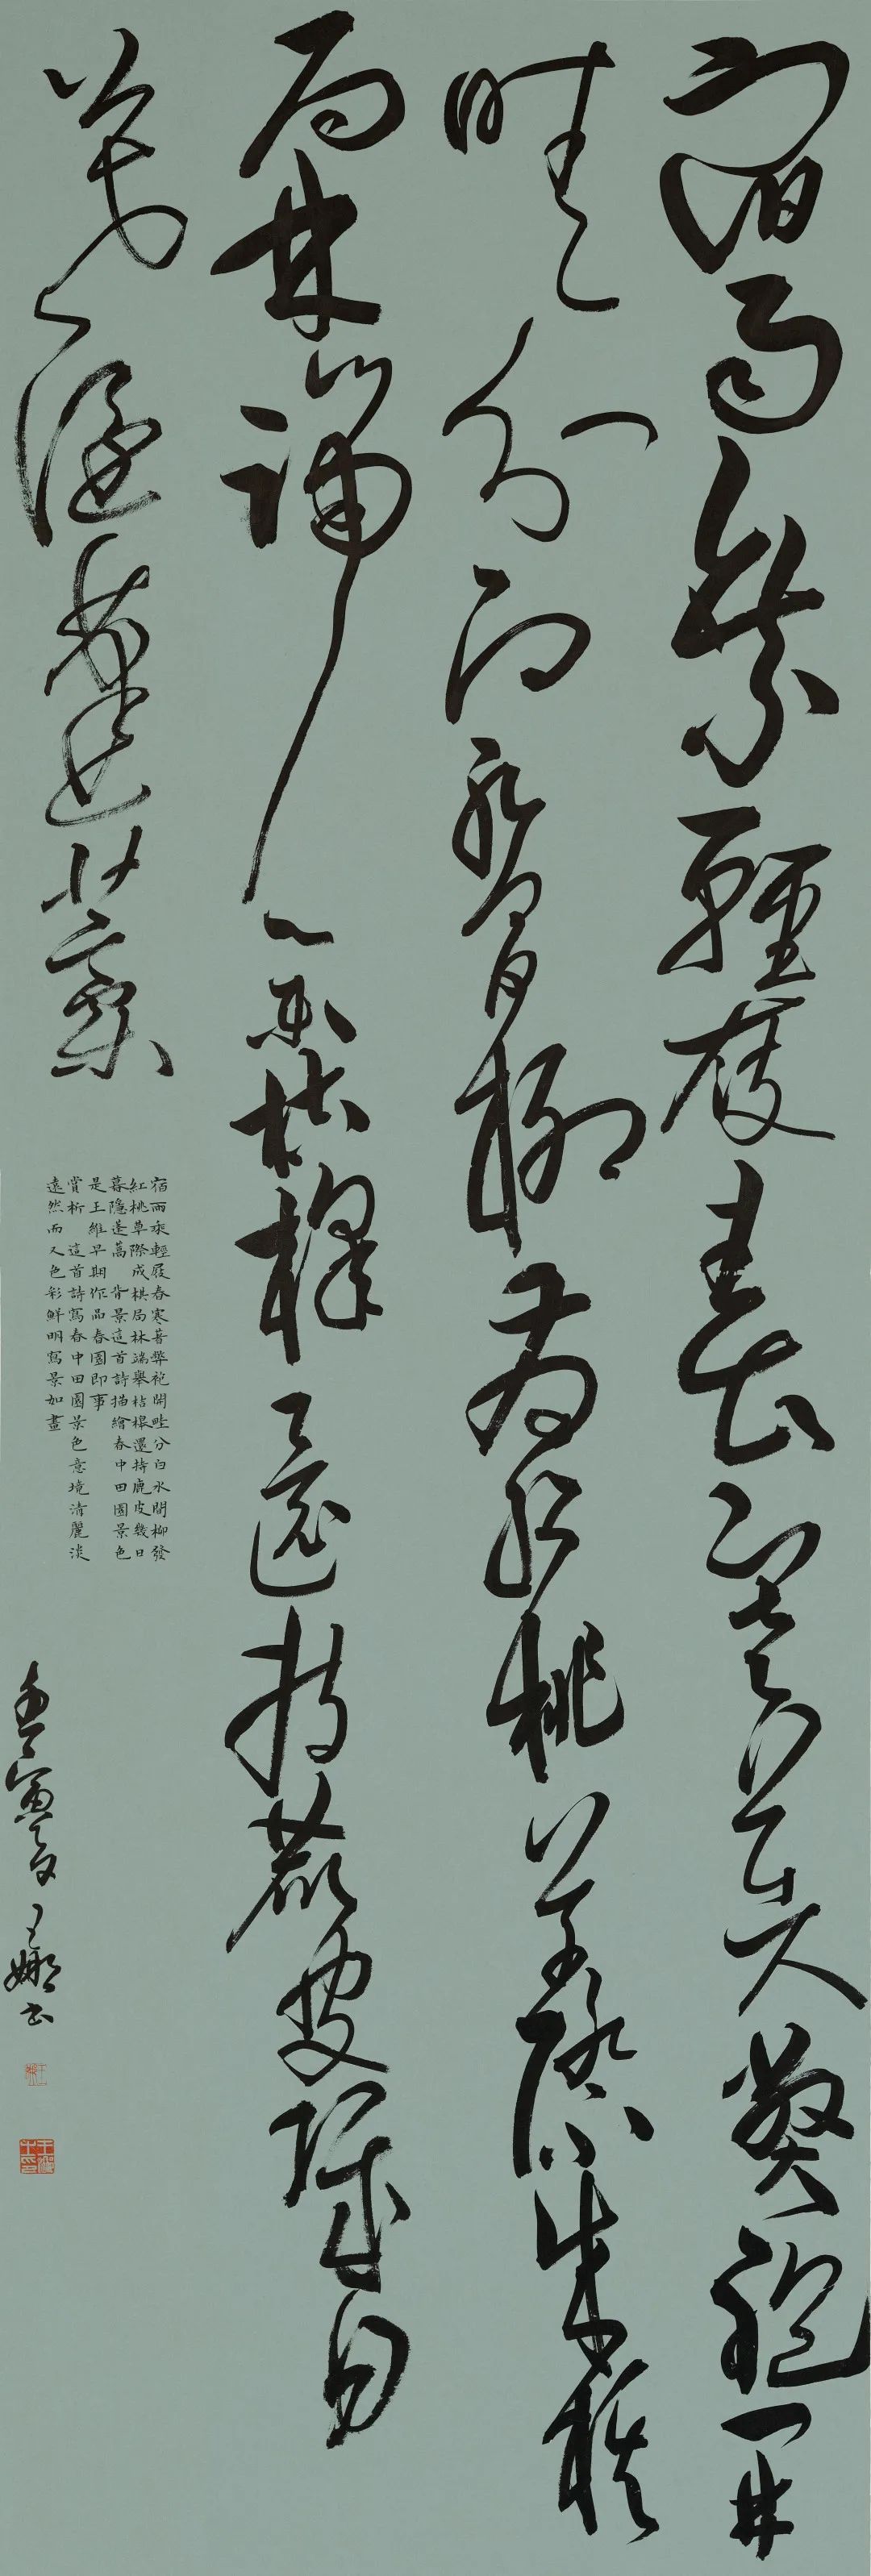 宿雨乘輕屐春寒著弊袍開
畦分白水間柳發紅桃草際成棋
局林端舉桔槔還持鹿皮幾日
暮隱蓬蒿
宿雨乘輕屐春寒著弊袍開畦分白水間柳發
紅桃草際成棋局林端舉桔槔還持鹿皮幾日
暮隱蓬蒿 背景這首詩描繪春中田園景色
是王維早期作品春園即事
賞析 這首詩寫春中田園景色意境清麗淡
遠然而又色彩鮮明寫景如畫
壬寅夏王娜書